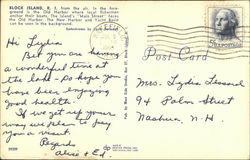 BLOCK ISLAND, R. I. from the air. In the fore-
ground is the Old Harbor where local fishermen
anchor their boats. The Island's "Main Street" faces
the Old Harbor. The New Harbor and Yacht Basin
can be seen in the background.
Hi Lydia
Bet you are having
a wonderful time at
the lake - Do hope you
have been enjoying
good health.
If we get up your
way we plan to pay
you a visit.
Regards
Alice & Ed.
Post Card
Mrs. Lydia
94 Palm Street
Nashua, N. H.